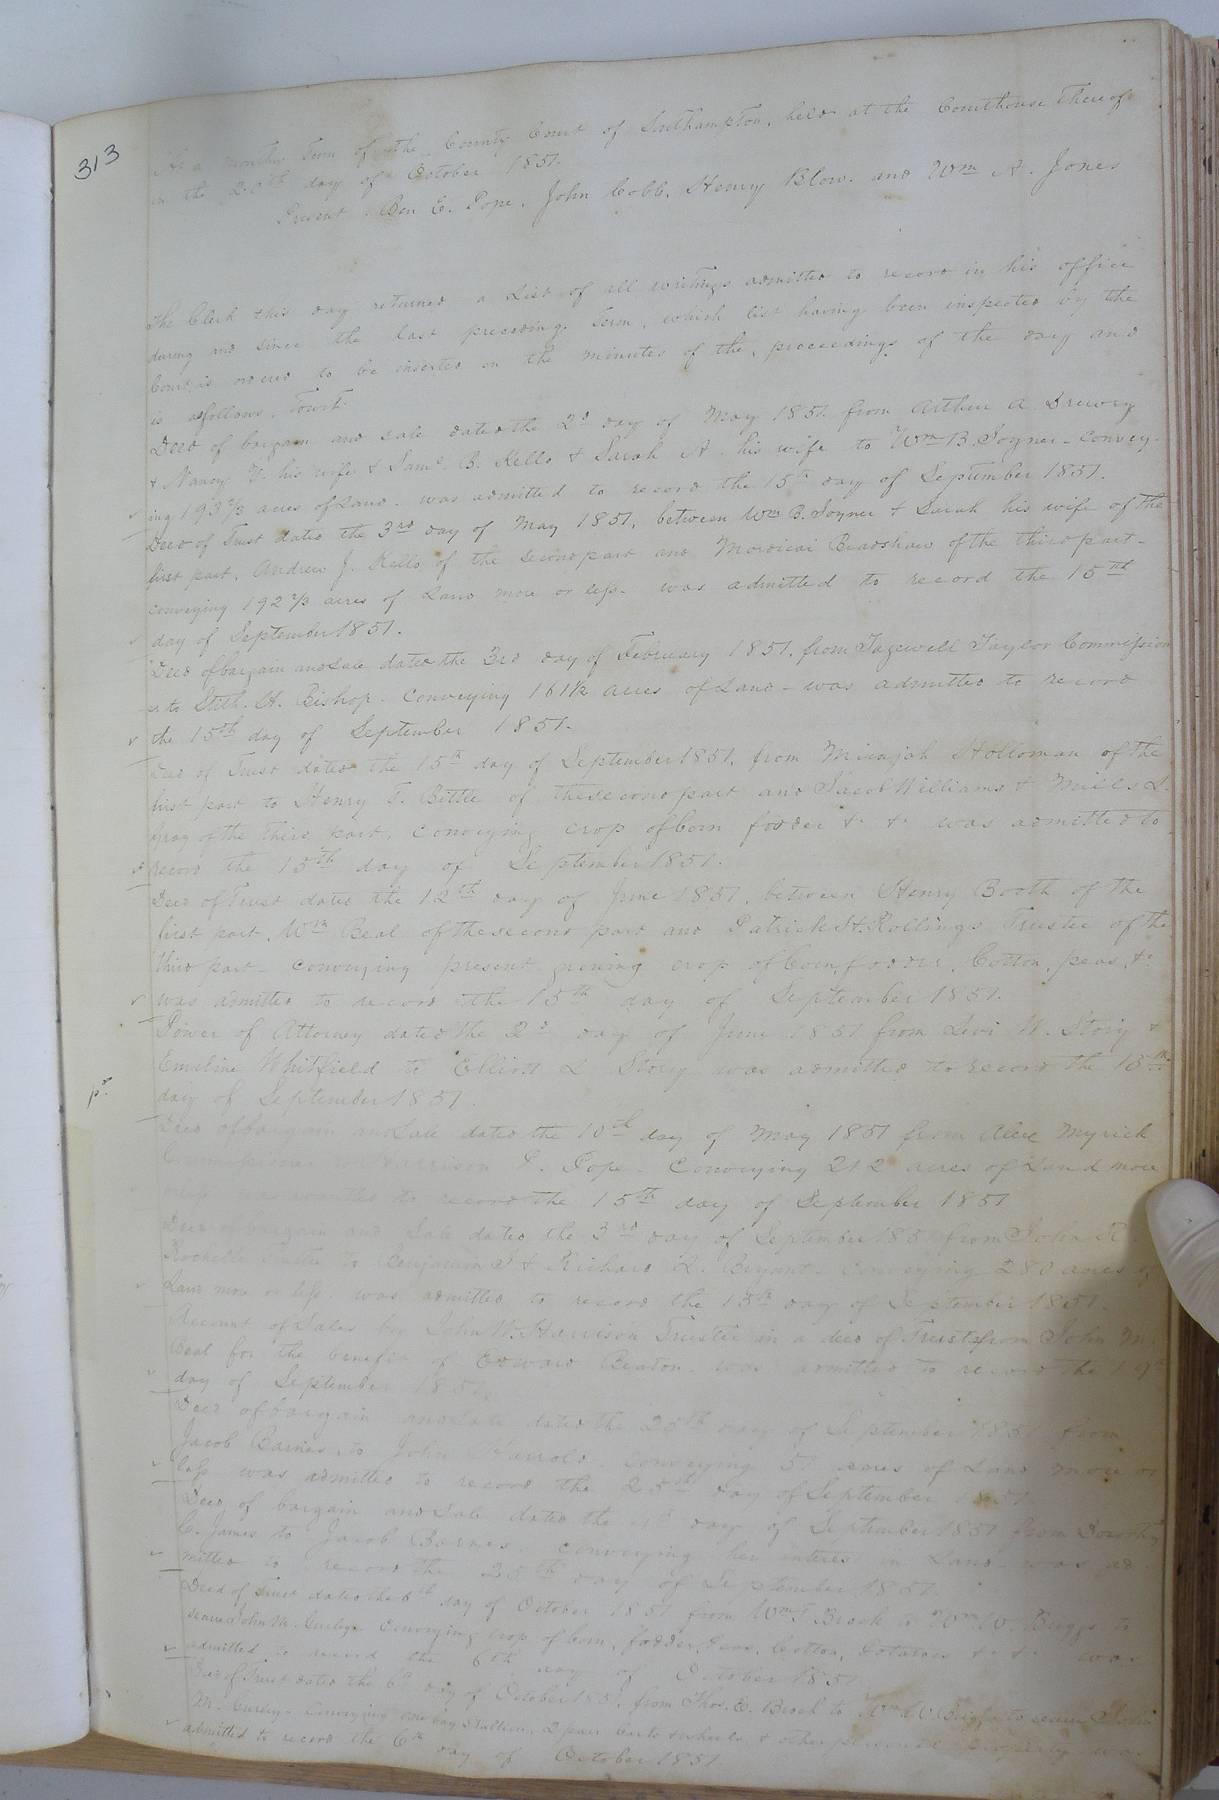 313
At a monthly Term of the County Court of Southampton, held at the Courthouse thereof
on the 20th day of October 1851.
Present Ben E. Pope, John Cobb, Henry Blow, and Wm A. Jones
The Clerk this day returned a List of all writings admitted to record in his office
during and since the last preceding Term, which list having been inspected by the
Court is ordered to be inserted on the minutes of the proceedings of the day and
is as follows, Towit.
Deed of bargain and sale dated the 2d day of May 1851 from Arthur A Drewry
& Nancy his wife & Saml B. Kello & Sarah A his wife to Wm B. Joyner - convey-
ing 193 2/3 acres of Land was admitted to record the 15th day of September 1851.
Deed of Trust dated the 3rd day of May 1851, between Wm B. Joyner & Sarah his wife of the
first part, Andrew J. Kello of the second part and Mordicai Bradshaw of the third part -
conveying 192 2/3 acres of Land more or less - was admitted to record the 15th
day of September 1851.
Deed of bargain and sale dated the 3rd day of February 1851, from Tazewell Taylor Commission
er to Stith H. Bishop - conveying 161 1/2 acres of Land - was admitted to record
the 15th day of September 1851.
Deed of Trust dated the 15th day of September 1851, from Micajah Holloman of the
first part to Henry T. Bittle of the second part and Jacob Williams & Mills L.
Gray of the third part, conveying crop of corn fodder &c &c was admitted to
record the 15th day of September 1851.
Deed of Trust dated the 12th day of June 1851, between Henry Booth of the
first part, Wm Beal of the second part and Patrick H. Rollings Trustee of the
third part - conveying present growing crop of Corn, fodder, Cotton, peas, &c
was admitted to record the 15th day of September 1851.
Power of Attorney dated the 2d day of June 1851 from Levi W. Story &
Emeline Whitfield to Elliott L Story was admitted to record the 15th
day of September 1851.
Deed of bargain and Sale dated the 10th day of May 1851 from Alexr Myrick
Commissioner to Harrison P. Pope - conveying 212 acres of Land more
or less was admitted to record the 15th day of September 1851
Deed of bargain and Sale dated the 3rd day of September 1851 from John R
Rochelle Trustee to Benjamin J & Richard L. Bryant - conveying 280 acres of
Land more or less was admitted to record the 15th day of September 1851.
Account of Sales by John W. Harrison Trustee in a deed of Trust from John M.
Beal for the benefit of Edward Beaton was admitted to record the 19th
day of September 1851.
Deed of bargain and Sale dated the 25th day of September 1851 from
Jacob Barnes to John Harrold conveying acres of Land more or
less was admitted to record the 25th day of September 1851
Deed of bargain and Sale dated the day of September 1851 from
C. James to Jacob Barnes - conveying her interest in Land - was ad
mitted to record the 25th day of September 1851.
Deed of Trust dated the 6th day of October 1851 from Wm T Brock to Wm W. Briggs to
secure John M. Gurley conveying crop of corn, fodder, peas, Cotton, Potatoes &c &c was
admitted to record the 6th day of October 1851.
Deed of Trust dated the 6th day of October 1851, from Thos. E. Brock to Wm W. Briggs to secure John
M. Gurley - conveying one bay Stallion, 2 pair carts & wheels & other personal property was
admitted to record the 6th day of October 1851.